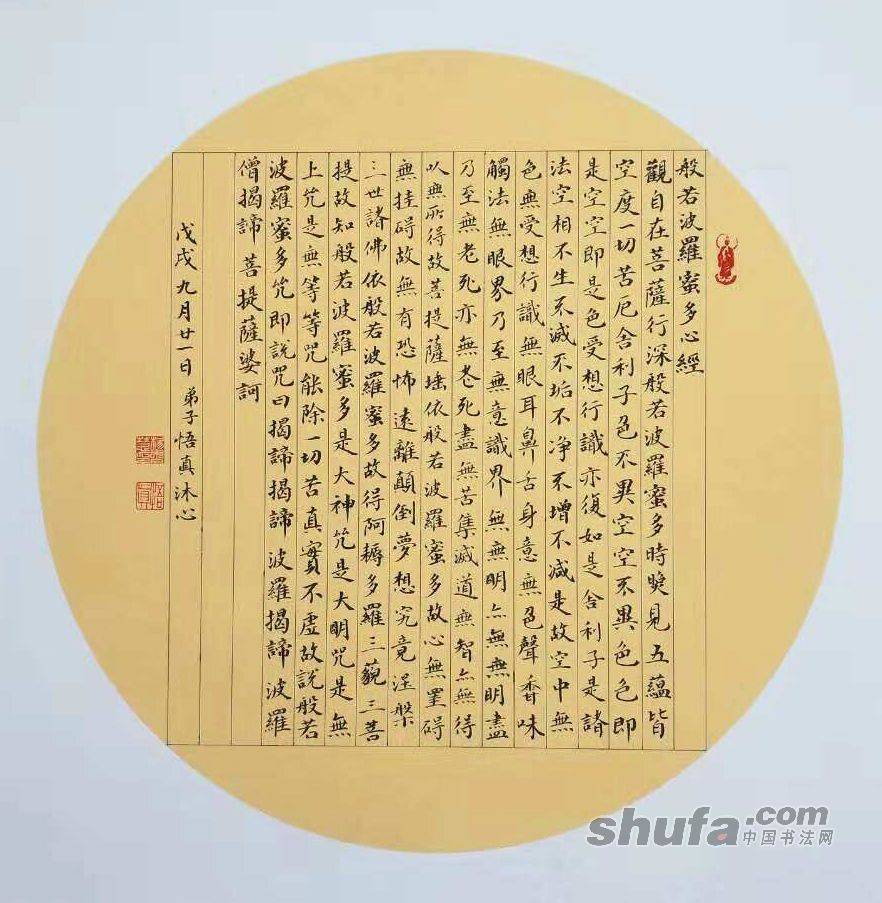 般若波羅蜜多心經
觀自在菩薩行深般若波羅蜜多時照見五蘊皆
空度一切苦厄舍利子色不異空空不異色色即
是空空即是色受想行識亦復如是舍利子是諸
法空相不生不滅不垢不净不增不减是故空中無
色無受想行識無眼耳鼻舌身意無色聲香味
觸法無眼界乃至無意識界無無明亦無無明盡
乃至無老死亦無老死盡無苦集滅道無智亦無得
以無所得故菩提薩埵依般若波羅蜜多故心無罣碍
無挂碍故無有恐怖遠離顛倒夢想究竟涅槃
三世諸佛依般若波羅蜜多故得阿耨多羅三藐三菩
提故知般若波羅蜜多是大神咒是大明咒是無
上咒是無等等咒能除一切苦真實不虛故說般若
波羅蜜多咒即說咒曰揭諦揭諦波羅揭諦波羅
僧揭諦菩提薩婆訶
戊戌九月廿一日 弟子悟真沐心
shufa.com
中国书法网